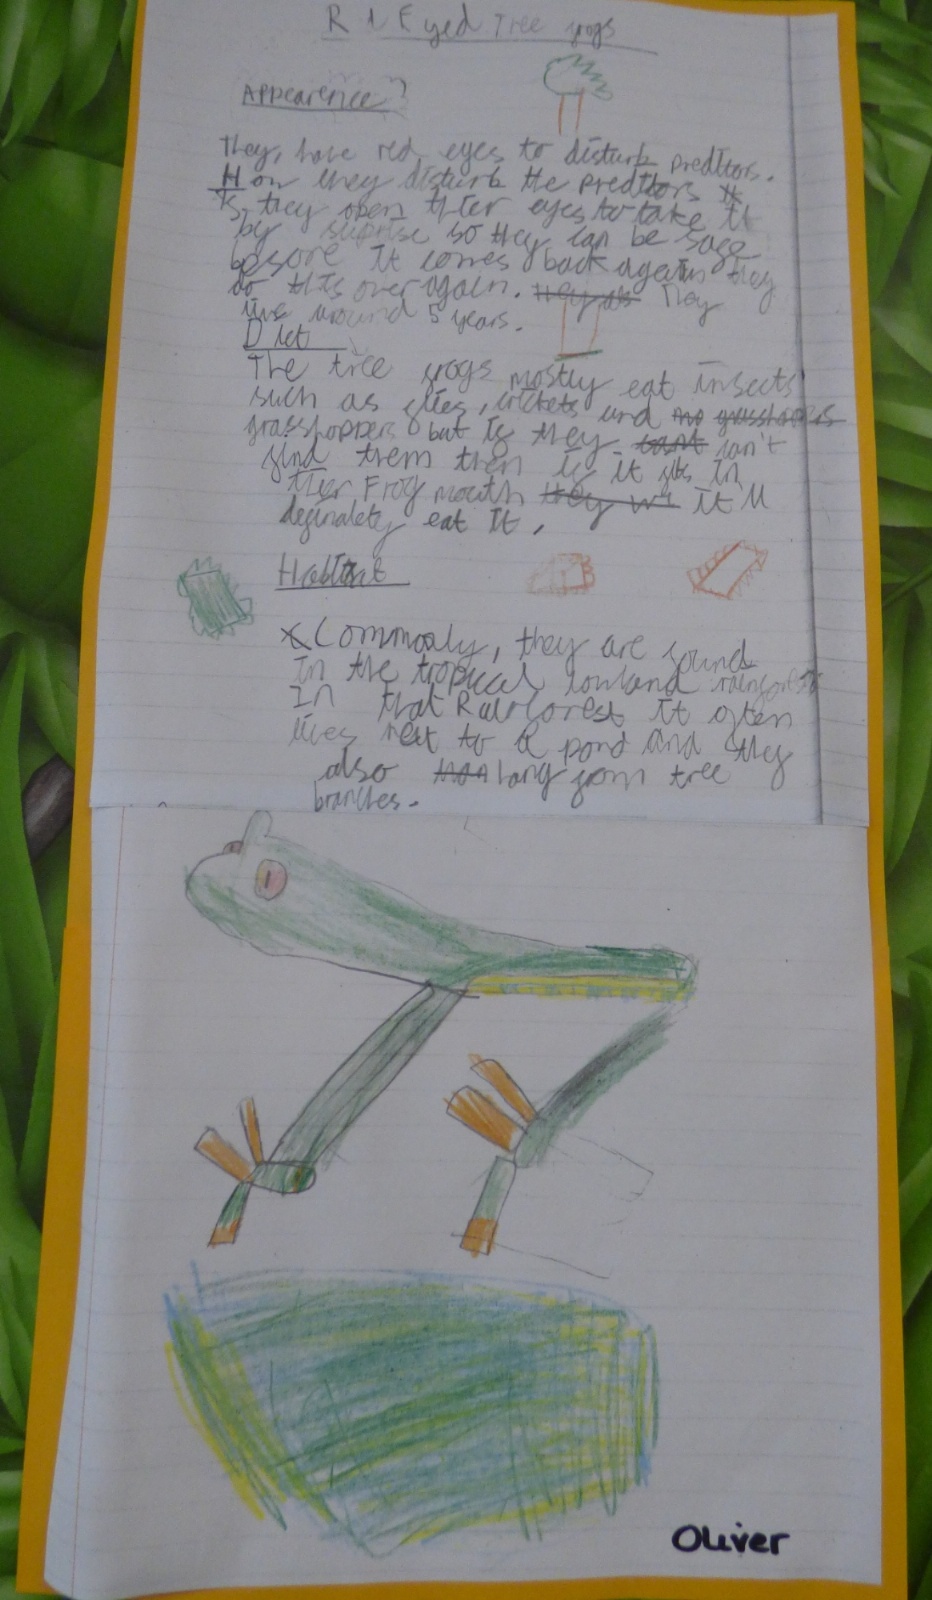 R d Eyed Tree frogs
Appearence?
They, have red eyes to disturb preditors.
How they disturb the preditors
is, they open thier eyes to take it
by suprise so they can be safe
before it comes back again they
do this over again. They
live around 5 years.
Diet
The tree frogs mostly eat insects
such as flies, crickets and grasshoppers
grasshoppers but if they can't
find them then if it fits in
thier Frog mouth it'll
definately eat it.
Habitat
Commonly, they are found
In the tropical lowland rainforest
In that Rainforest it often
lives next to a pond and they
also hang from tree
branches.
Oliver